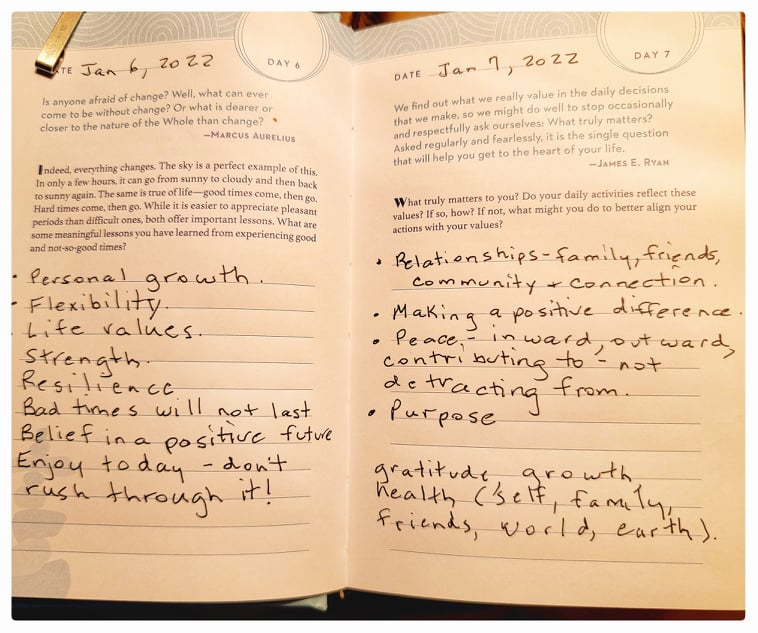 ATE Jan 6, 2022
DAY 6
Is anyone afraid of change? Well, what can ever
come to be without change? Or what is dearer or
closer to the nature of the Whole than change?
—MARCUS AURELIUS
Indeed, everything changes. The sky is a perfect example of this.
In only a few hours, it can go from sunny to cloudy and then back
to sunny again. The same is true of life—good times come, then go.
Hard times come, then go. While it is easier to appreciate pleasant
periods than difficult ones, both offer important lessons. What are
some meaningful lessons you have learned from experiencing good
and not-so-good times?
• Personal growth.
• Flexibility.
Life values.
Strength.
Resilience
Bad times will not last
Belief in a positive future
Enjoy today - don't
rush through it!
DATE Jan 7, 2022
DAY 7
We find out what we really value in the daily decisions
that we make, so we might do well to stop occasionally
and respectfully ask ourselves: What truly matters?
Asked regularly and fearlessly, it is the single question
that will help you get to the heart of your life.
—JAMES E. RYAN
What truly matters to you? Do your daily activities reflect these
values? If so, how? If not, what might you do to better align your
actions with your values?
• Relationships - family, friends,
community + connection.
• Making a positive difference.
• Peace, - inward, outward,
contributing to - not
detracting from.
• Purpose
gratitude, growth,
health (self, family,
friends, world, earth).